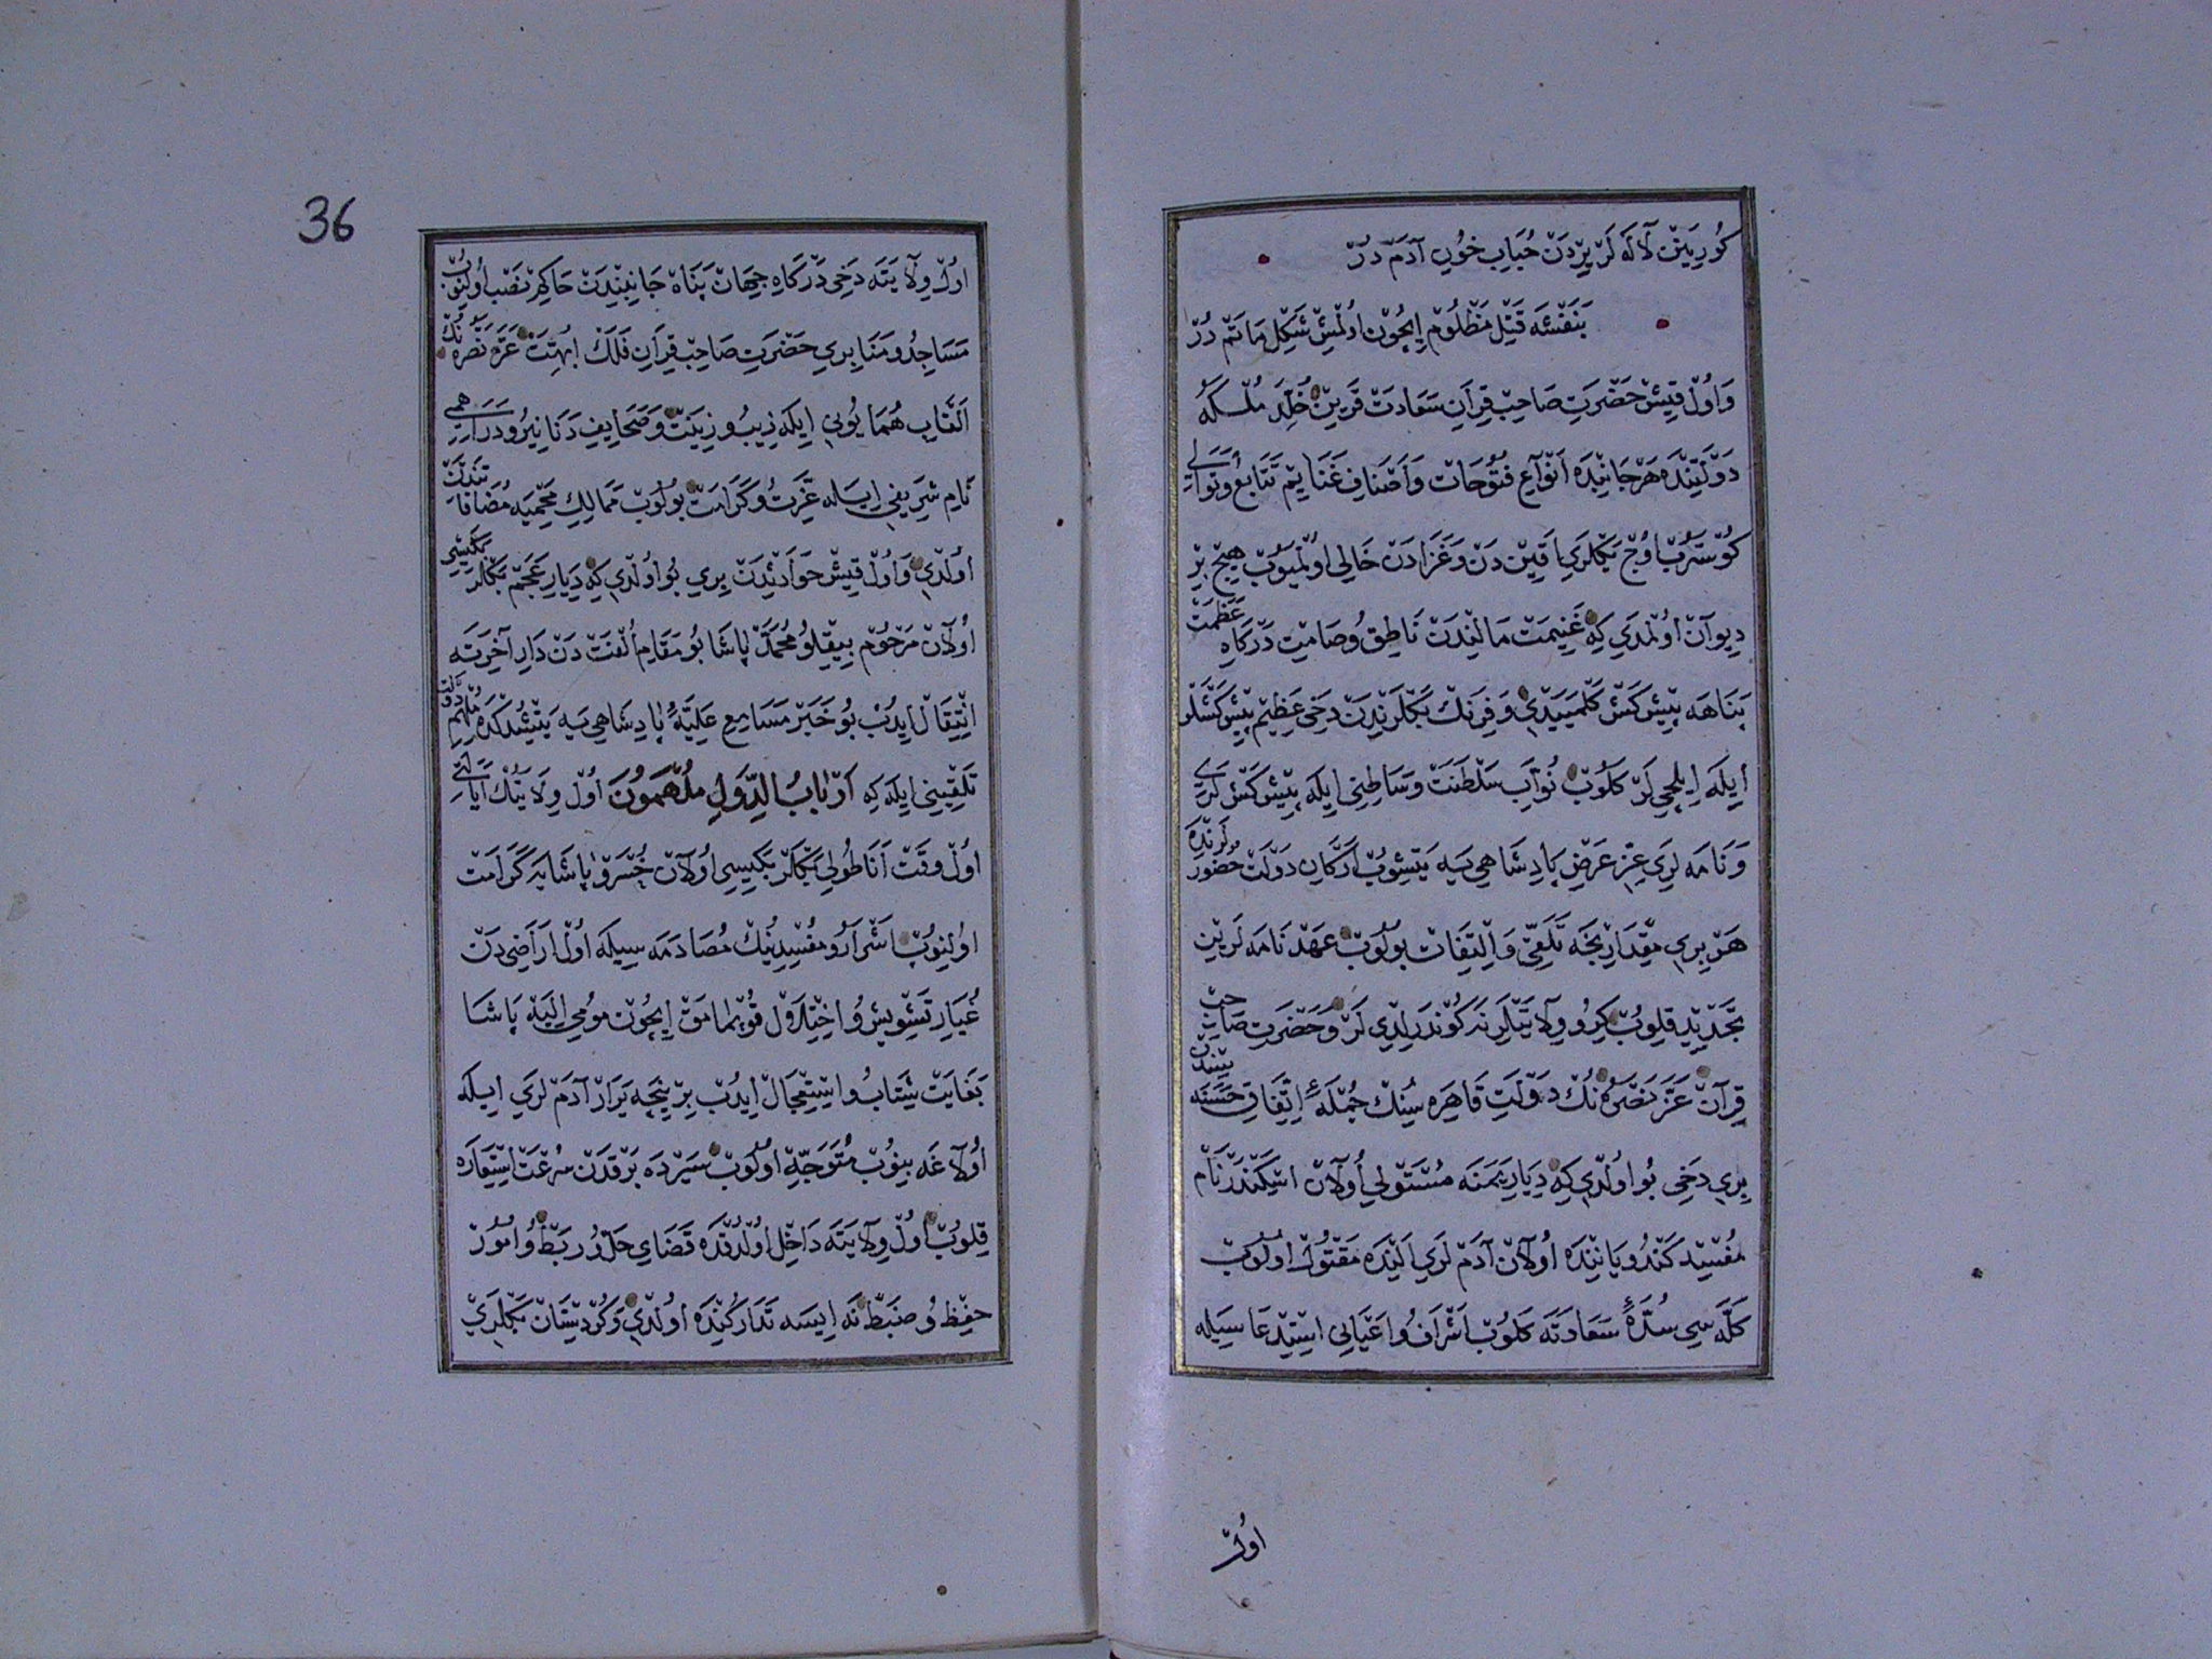 كُورِينَنْ لَالَه لَرْ يِرْدَنْ حُبَابِ خُونِ آدَمْ دُرْ
بَنَفْشَه قَتْلِ مَظْلُومْ اِيچُونْ اُولْمِشْ شَكْلِ مَاتَمْ دُرْ
وَاُولْ قِيشْ حَضْرَتِ صَاحِبْ قِرَانِ سَعَادَتْ قَرِينْ خُلِّدَ مُلْكُهُ
دَوْلَتِنْدَه هَرْ جَانِبْدَه اَنْوَاعِ فُتُوحَاتْ وَاَصْنَافِ غَنَايِمْ تَتَابُعْ وَتَوَالِي
كُوسْتَرُبْ اُوجْ بَكْلَرِي اَقِينْ دَنْ وَغَزَادَنْ خَالِي اُولْمَيُوبْ هِيچْ بِرْ
دِيوَانْ اُولْمَدِي كِه غَنِيمَتْ مَالِنْدَنْ نَاطِقْ وُصَامِتْ دَرْكَاهِ عَظَمَتْ
پَنَاهَه پِيشْكَشْ كَلْمَيَيْدِي وَفِرَنْكْ بَكْلَرِنْدَنْ دَخِي عَظِيمْ پِيشْكَشْلَرْ
اِيلَه اِيلْچِي لَرْ كَلُوبْ نُوَّابِ سَلْطَنَتْ وَسَاطَتِي اِيلَه پِيشْكَشْ لَرِي
وَنَامَه لَرِي عِزِّ عَرْضِ پَادِشَاهِي يَه يَتِشُوبْ اَرْكَانِ دَوْلَتْ حُضُورْلَرِنْدَه
هَرْ بِرِي مِقْدَارِنْجَه تَلَقِّي وَاِلْتِفَاتْ بُولُوبْ عَهْدْ نَامَه لَرِينْ
تَجْدِيدِ قِلُوبْ كِرُو وِلَايَتْلَرِنَه كُونْدَرِلْدِي لَرْ وَحَضْرَتِ صَاحِبْ
قِرَانْ عَزَّ نَصْرُهُ نُكْ دَوْلَتِ قَاهِرَه سِنُكْ جُمْلَهٔ اِتِّفَاقِ حَسَنَه سِنْدَنْ
بِرِي دَخِي بُو اُولْدِي كِه دِيَارِ يَمَنَه مُسْتَوْلِي اُولَانْ اِسْكَنْدَرْ نَامْ
مُفْسِدِ كَنْدُو يَانِنْدَه اُولَانْ آدَمْ لَرِي اَلِنْدَه مَقْتُولْ اُولُوبْ
كَلَّه سِي سُدَّهٔ سَعَادَتَه كَلُوبْ اَشْرَافُ وَاَعْيَانِي اِسْتِدْعَا سِيلَه
اُولْ
36
اُولْ وِلَايَتَه دَخِي دَرْكَاهِ جِهَانْ پَنَاهْ جَانِبِنْدَنْ حَاكِمْ نَصْبْ اُولِنُوبْ
مَسَاجِدُ وَمَنَابِرِي حَضْرَتِ صَاحِبْ قِرَانِ فَلَكْ اُبَّهَتْ عَزَّ نَصْرُهُ نُكْ
اَلْقَابِ هُمَايُونِي اِيلَه زِيبُ وزِينَتْ وَصَحَايِفِ دَنَانِيرُ ودَرَاهِمِي
نَامِ شَرِيفِي اِيلَه عِزَّتُ وكَرَامَتْ بُولُوبْ مَمَالِكِ مَحْمِيَه مُضَافَاتِنْدَنْ
اُولْدِي وَاُولْ قِيشْ حَوَادِثِنْدَنْ بِرِي بُو اُولْدِي كِه دِيَارِ عَجَمْ بَكْلَرْ بَكِيسِي
اُولَانْ مَرْحُومْ بِيِقْلُو مُحَمَّدْ پَاشَا بُو مَقَامِ اُلْفَتْ دَنْ دَارِ آخِرَتَه
اِنْتِقَالْ اِيدُبْ بُو خَبَرْ مَسَامِعِ عَلِيَّهٔ پَادِشَاهِي يَه يَتِشْدُكْدَه مُلْهِمِ دَوْلَتْ
تَلْقِينِي اِيلَه كِه اَرْبَابُ الدُّوَلِ مُلْهَمُونَ اُولْ وِلَايَتُكْ اَيَالَتِي
اُولْ وَقْتْ اَنَاطُولِي بَكْلَرْبَكِيسِي اُولَانْ خُسْرَوْ پَاشَايَه كَرَامَتْ
اُولِنُوبْ اَشْرَارُ ومُفْسِدِينُكْ مُصَادَمَه سِيلَه اُولْ اَرَاضِي دَنْ
غُبَارِ تَشْوِيشُ وَاخْتِلَالْ قُوپْمَامَقْ اِيچُونْ مُومِى اِلَيْه پَاشَا
بَغَايَتْ شِتَابُ وَاسْتِعْجَالْ اِيدُبْ بِرْ نِيچَه يَرَارْ آدَمْ لَرِي اِيلَه
اُولَاغَه بِنُوبْ مُتَوَجِّهْ اُولُوبْ سَيْرْدَه بَرْقْدَنْ سُرْعَتْ اِسْتِعَارَه
قِلُوبْ اُولْ وِلَايَتَه دَاخِلْ اُولْدُقْدَه قَضَايِ حَلُّ ورَبْطُ وَاُمُورْ
حِفْظُ وضَبْطْ نَه اِيسَه تَدَارُكِنْدَه اُولْدِي وَكُرْدِسْتَانْ بَكْلَرِي